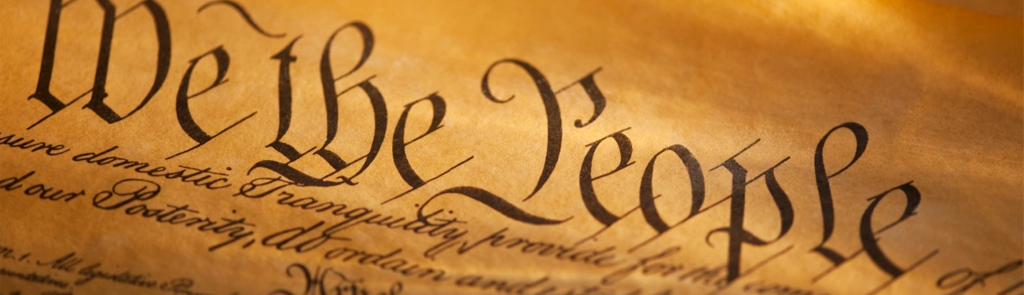 We the People of
sure domestic Tranquility, provide for the com
d our Posterity, do ordain and
1. All legislative Powers